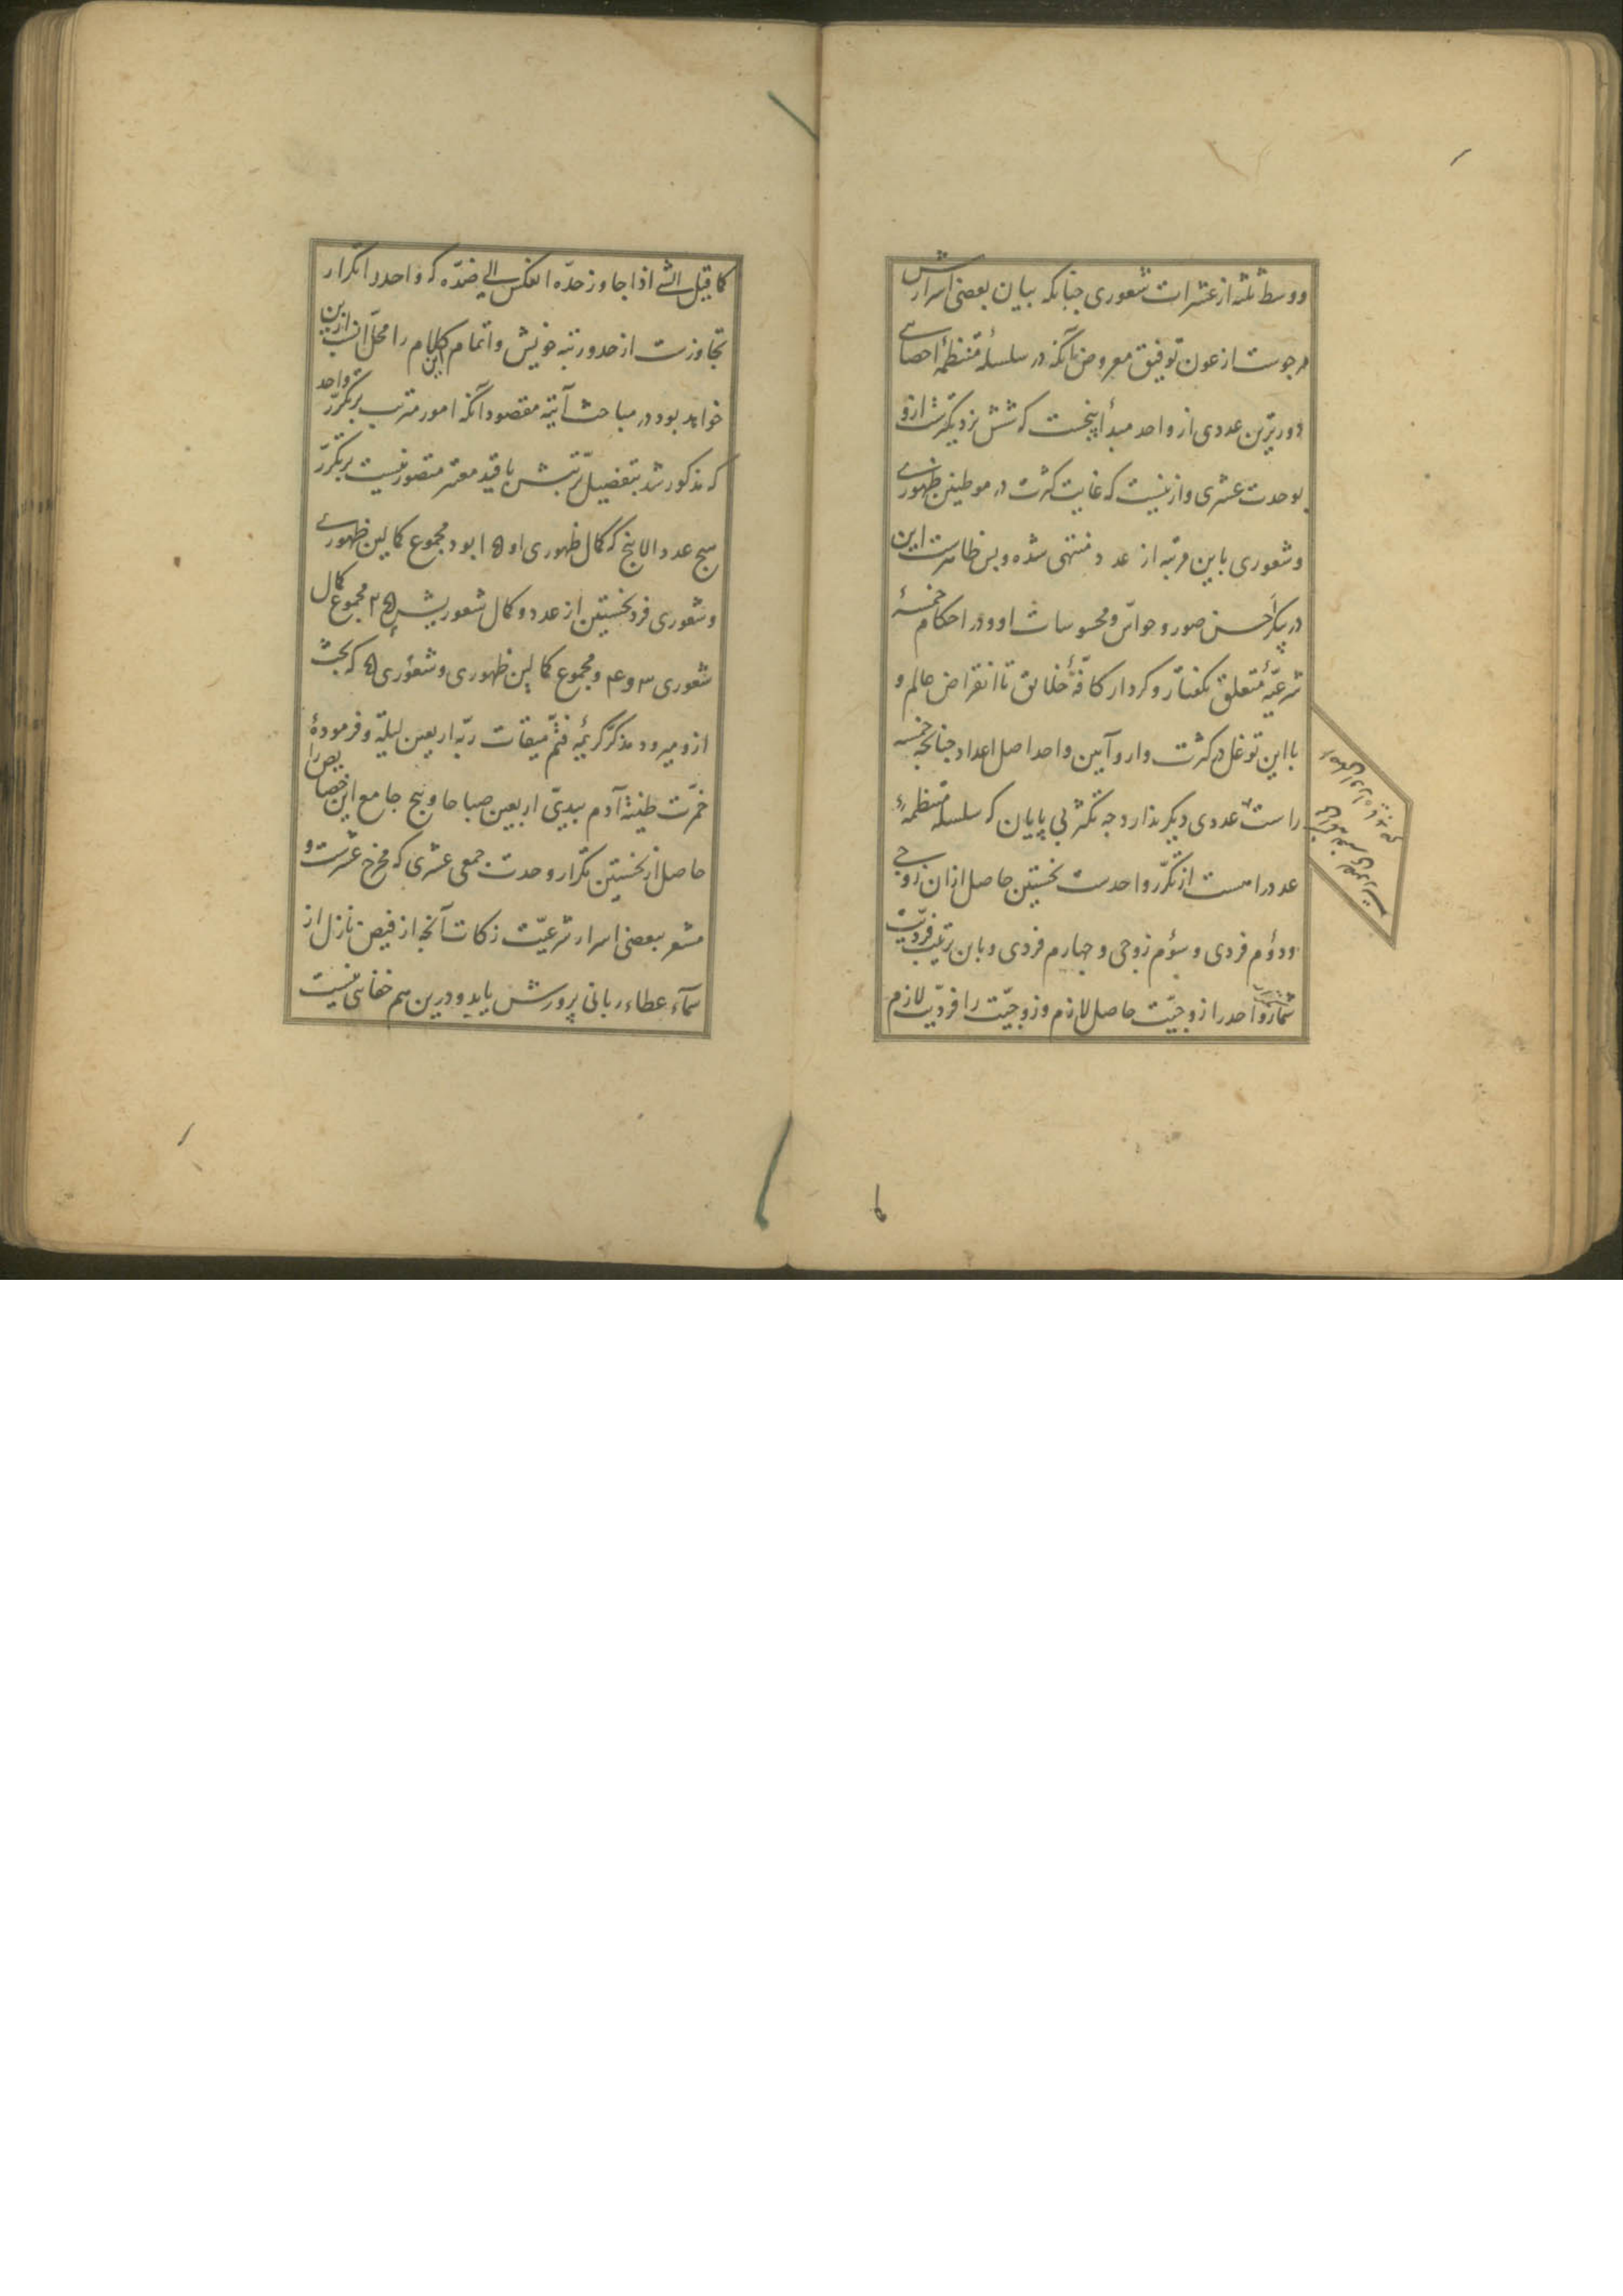 و وسط ثلثه از عشرات شعوری چنانکه بیان بعضی اسرارش
مرجوست از عون توفیق معروض آنکه در سلسلهٔ منتظمهٔ احصای
دورترین عددی از واحد مبدأ پنجست که شش نزدیکترست ازو
بوحدت عشری و ازینست که غایت کثرت در موطنین ظهوری
و شعوری باین مرتبه از عدد منتهی شده و بس ظاهرست این
در پیکر احسن صور و حواس و محسوسات او و در احکام خمسهٔ
شرعیهٔ متعلق بگفتار و کردار کافهٔ خلایق تا انقراض عالم و
با این توغل در کثرت وار و آیین واحد اصل اعداد چنانچه خمسه
راست عددی دیگر ندارد چه تکثر بی پایان که سلسله منتظمهٔ
عدد راست از تکرر واحدست نخستین حاصل ازان زوجی
و دوم فردی و سوم زوجی و چهارم فردی و باین ترتیب فردیت
شمار واحد را زوجیت حاصل لازم و زوجیت را فردیت لازم
کما قیل الشی اذا جاوز حده انعکس الی ضده که واحد را تکرار
تجاوزست از حد و رتبه خویش و اتمام این کلام را محل انسب ازین
خواهد بود در مباحث آتیه مقصود آنکه امور مترتب بر تکرر واحد
که مذکور شد بتفصیل ترتبش با قید معتبر متصور نیست بر تکرر
هیچ عدد الا پنج که کمال ظهوری او ۱۵ بود مجموع کمالین ظهوری
و شعوری فرد نخستین از عدد و کمال شعوریش ۳۵ مجموع کمال
شعوری ۳ و ۴ و مجموع کمالین ظهوری و شعوری ۵ که بحث
ازو میرود مذکر کریمه فتم میقات ربه اربعین لیلة و فرمودهٔ
خمرت طینة آدم بیدی اربعین صباحا و پنج جامع این خصایص را
حاصل از نخستین تکرار وحدت جمعی عشری که مخرج عشرست و
مشعر ببعضی اسرار شرعیت زکات آنچه از فیض نازل از
سمآء عطاء ربانی پرورش یابد و درین هم خفایی نیست